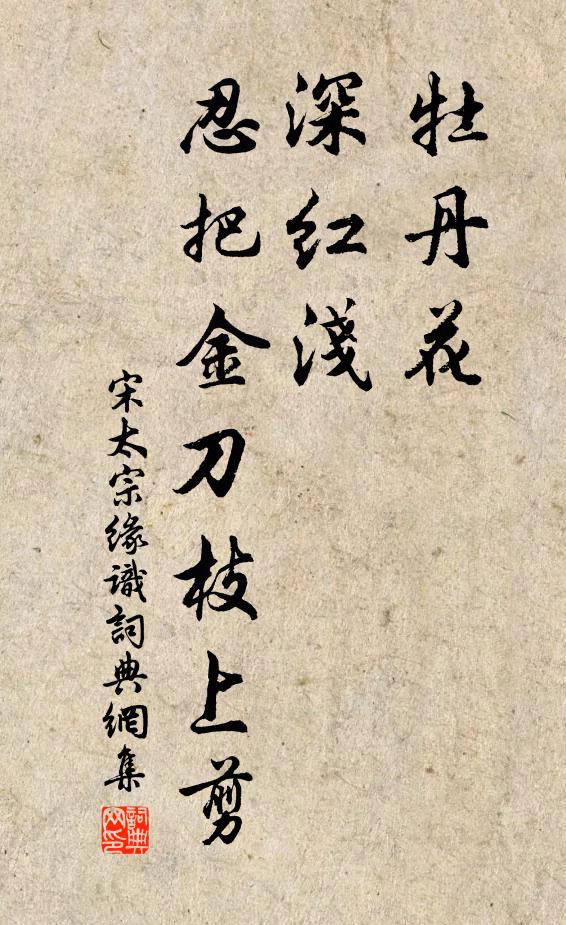 牡丹花
深红淺
忍把金刀枝上剪
宋太宗緣識詞典網集
詞典
网印